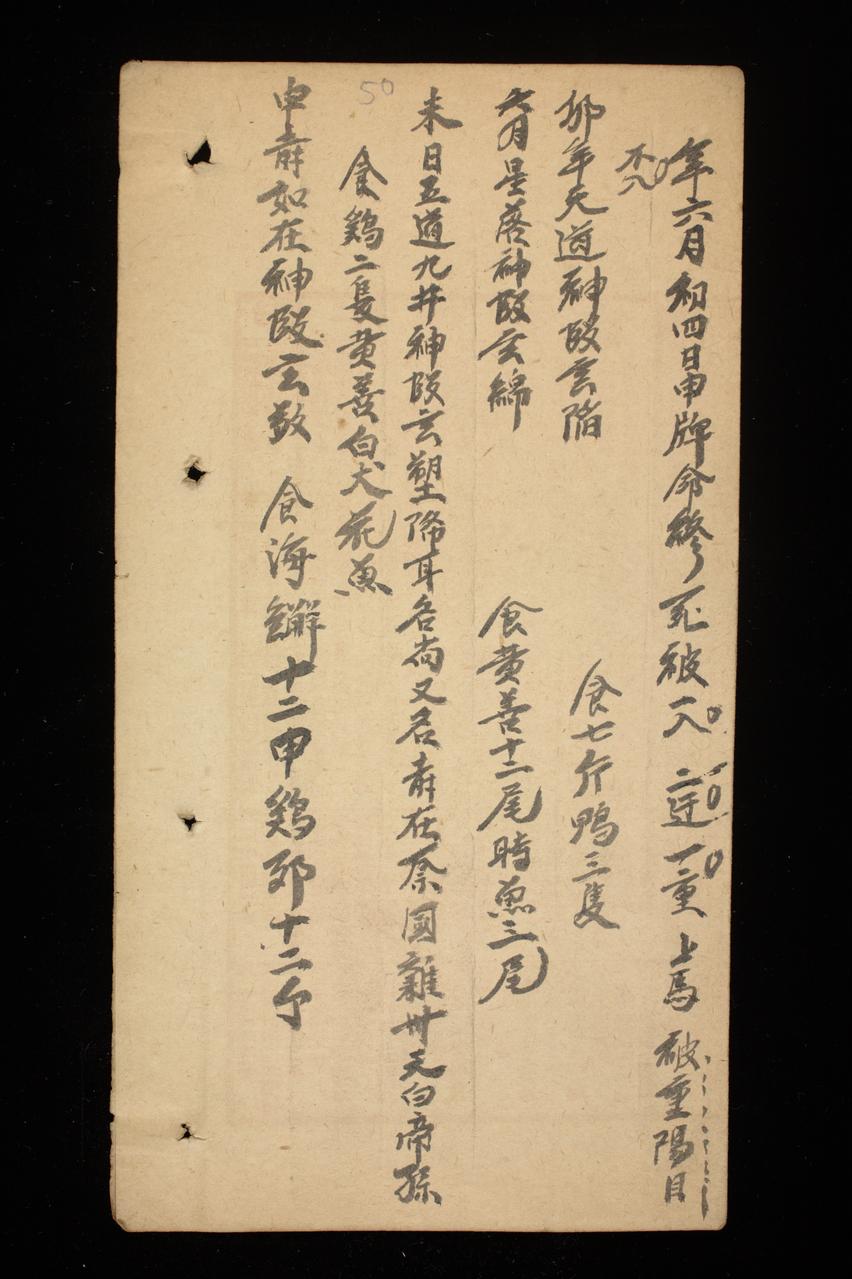 年六月初四日申牌命終 死被一入 二迋 一重 上馬 被重陽日
不入
卯年天道神殺玄階 食七斤鴨三隻
六月星落神殺玄綿 食黄善十二尾時魚三尾
未日五道九井神殺玄塑降耳名尚又名奔在奈國離卅天白帝孫
50
食鷄二隻黄善白犬花魚
申奔如在神殺玄数 食海 十二甲鷄卵十二个